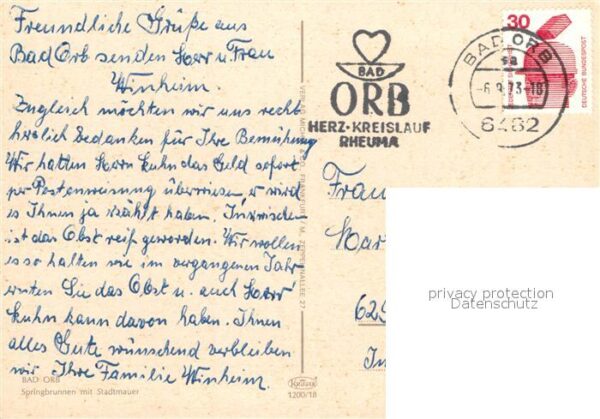 Freundliche Grüße aus
Bad Orb senden Herr u. Frau
Winheim.
Zugleich möchten wir uns recht
herzlich bedanken für Ihre Bemühung
Wir hatten Herrn Kuhn das Geld sofort
per Postanweisung überwiesen, er wird
es Ihnen ja erzählt haben. Inzwischen
ist das Obst reif geworden. Wir wollen
es so halten wie im vergangenen Jahr
ernten Sie das Obst u. auch Herr
Kuhn kann davon haben. Ihnen
alles Gute wünschend verbleiben
wir Ihre Familie Winheim.
BAD ORB
Springbrunnen mit Stadtmauer
Krüger
1200/18
BAD
ORB
HERZ-KREISLAUF
RHEUMA
BAD ORB
-6.9.73-18
6482
30
DEUTSCHE BUNDESPOST
Frau
Mar
629
privacy protection
Datenschutz